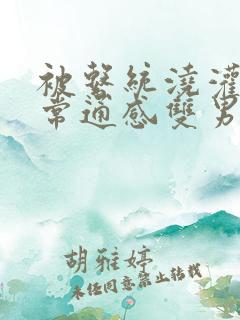 被繫統澆灌
常通感雙男
胡雅婷
未经同意禁止转载